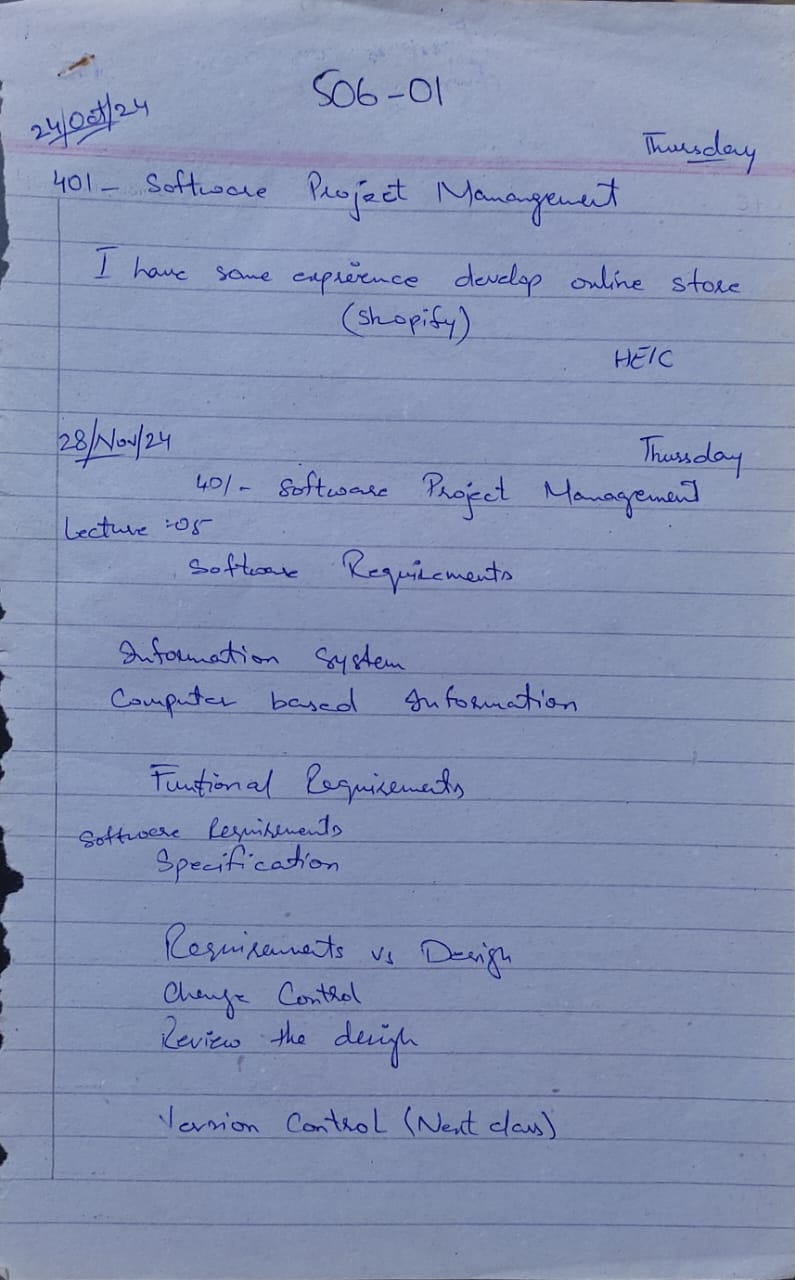 S06-01
24/Oct/24
Thursday
401- Software Project Management
I have some exprērence develop online store
(Shopify)
HEIC
28/Nov/24
Thursday
401- Software Project Management
Lecture :-05
Software Requirements
Information System
Computer based Information
Funtional Requirements
Software Requirements
Specification
Requirements vs Design
Change Control
Review the design
Version Control (Next class)